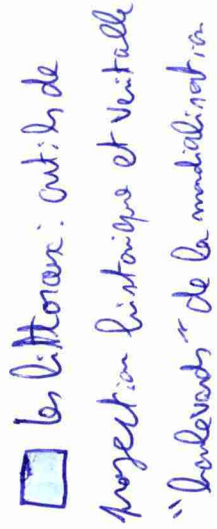 Les littoraux : outils de
projection historique et véritable
"boulevards" de la mondialisation